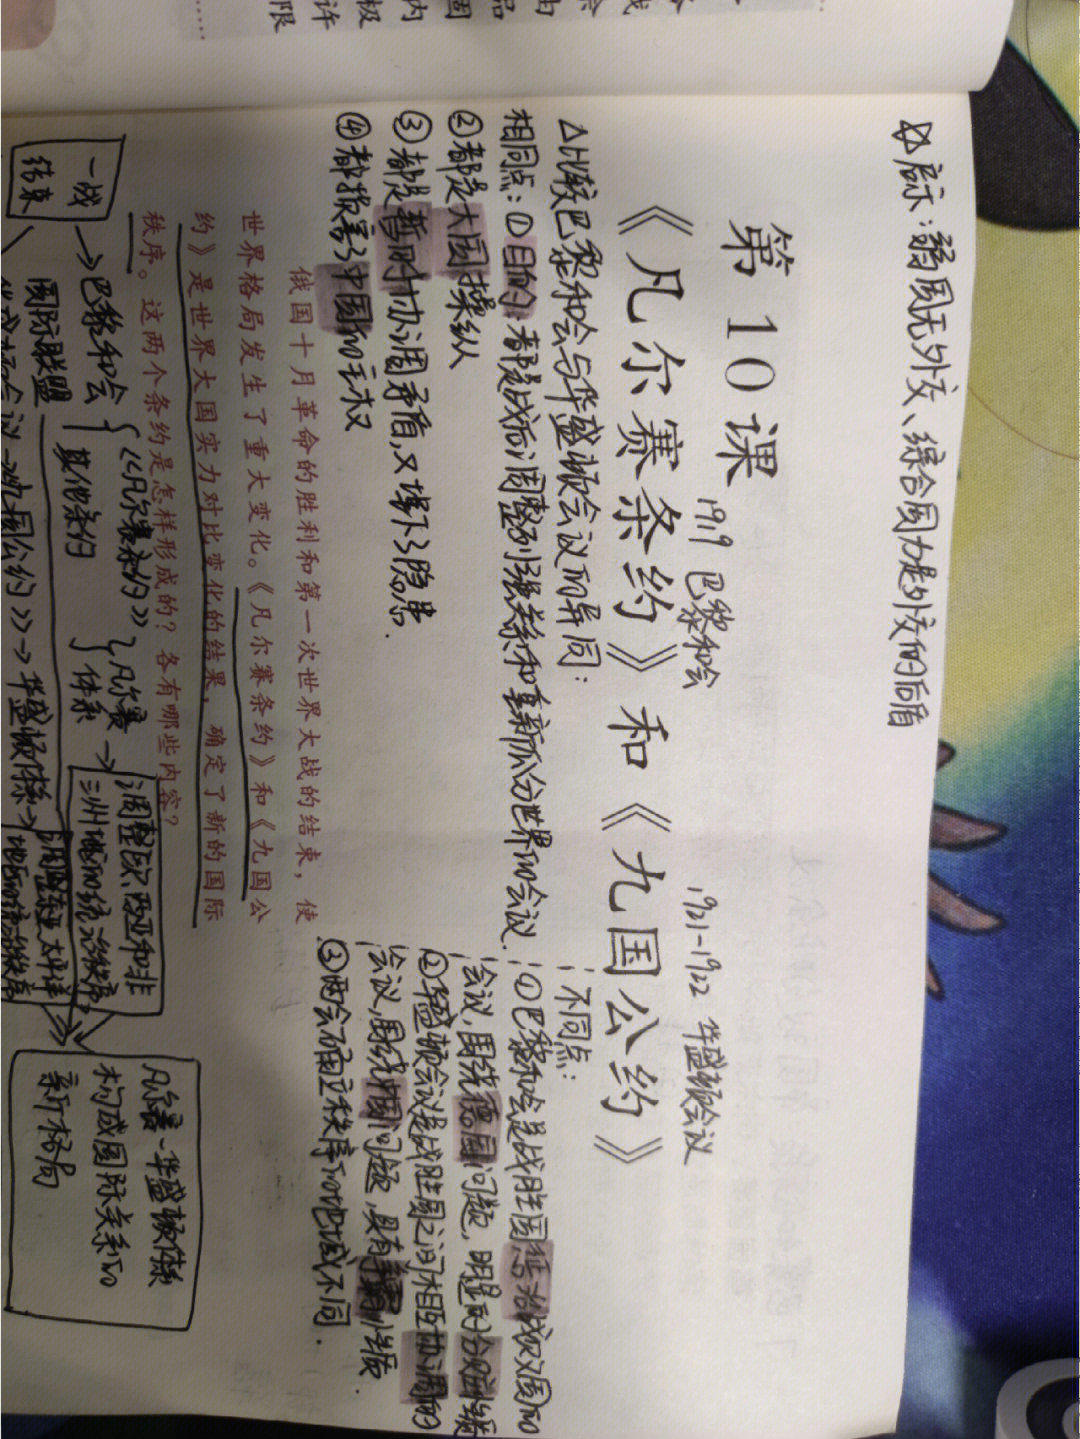 启示：弱国无外交、综合国力是外交的后盾
第10课
1919 巴黎和会
1921-1922 华盛顿会议
《凡尔赛条约》和《九国公约》
△比较巴黎和会与华盛顿会议的异同：
相同点：①目的：都是战后调整列强关系和重新瓜分世界的会议.
②都是大国操纵
③都是暂时协调矛盾,又埋下了隐患.
④都损害了中国的主权
不同点：
①巴黎和会是战胜国惩治战败国的
会议,围绕德国问题,明显的分赃性质
②华盛顿会议是战胜国之间相互协调的
会议,围绕中国问题,具有性质.
③两会确立秩序的地域不同.
俄国十月革命的胜利和第一次世界大战的结束，使
世界格局发生了重大变化。《凡尔赛条约》和《九国公
约》是世界大国实力对比变化的结果，确定了新的国际
秩序。这两个条约是怎样形成的？各有哪些内容？
一战
结束
→巴黎和会
国际联盟
《凡尔赛条约》
其他条约
凡尔赛
体系
→
调整欧、西亚和非
三洲地的统治秩序
九国公约》→华盛顿体系→
调整东亚、太平洋
地的统治秩序
凡尔赛—华盛顿体系
构成国际关系的
新格局